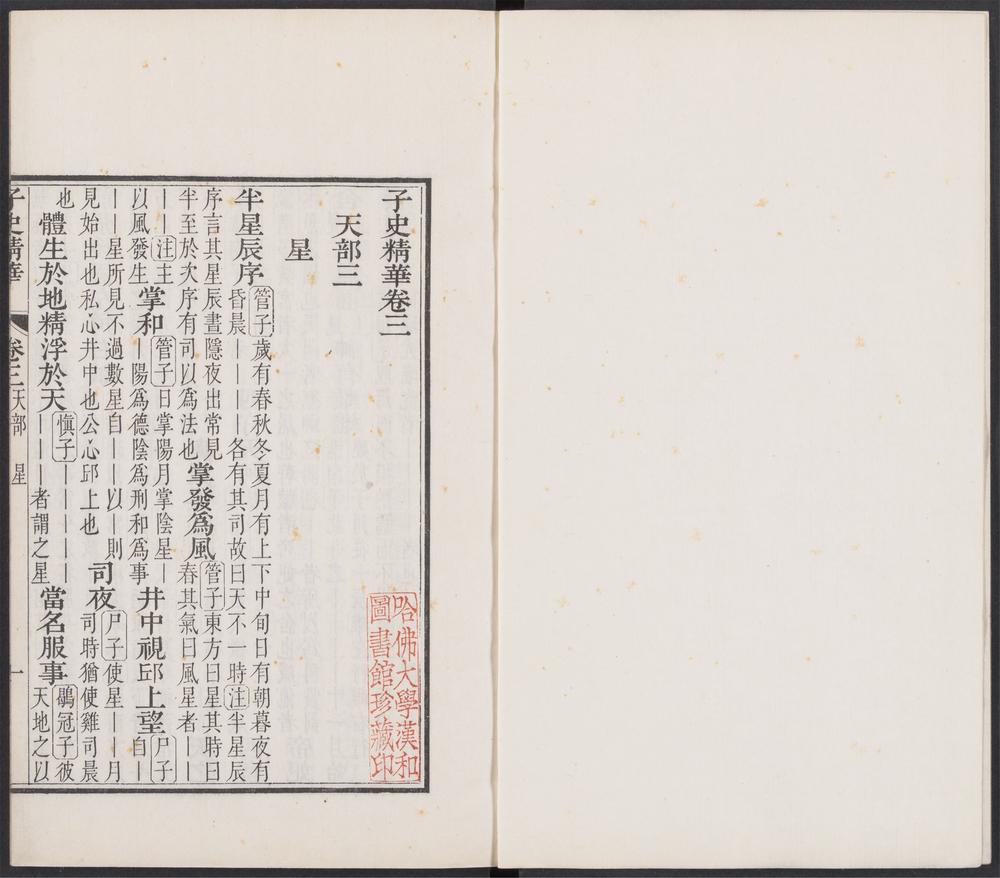 子史精華卷三
天部三
星
半星辰序
管子歲有春秋冬夏月有上下中旬日有朝暮夜有
昏晨｜｜｜｜各有其司故曰天不一時注半星辰
序言其星辰晝隱夜出常見
半至於次序有司以爲法也
掌發爲風
管子東方曰星其時曰
春其氣曰風星者｜
｜｜注主
以風發生
掌和
管子日掌陽月掌陰星｜
｜陽爲德陰爲刑和爲事
井中視邱上望
尸子
自｜
｜｜星所見不過數星自｜｜以｜則
見始出也私心井中也公心邱上也
司夜
尸子使星｜｜月
司時猶使雞司晨
也
體生於地精浮於天
慎子｜｜｜｜｜
｜｜｜｜者謂之星
當名服事
鶡冠子彼
天地之以
子史精華
卷三天部 星
一
哈佛大學漢和
圖書館珍藏印